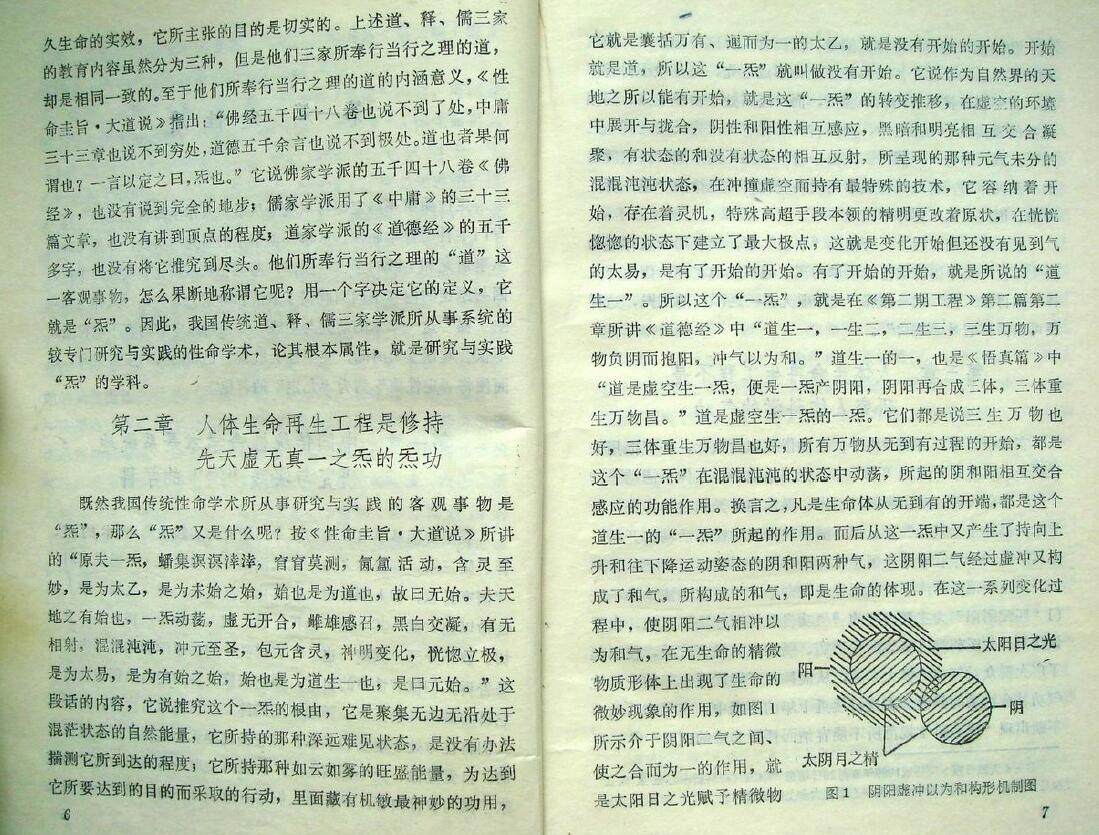 久生命的实效，它所主张的目的是切实的。上述道、释、儒三家
的教育内容虽然分为三种，但是他们三家所奉行当行之理的道，
却是相同一致的。至于他们所奉行当行之理的道的内涵意义，《性
命圭旨·大道说》指出：“佛经五千四十八卷也说不到了处，中庸
三十三章也说不到穷处，道德五千余言也说不到极处。道也者果何
谓也？一言以定之曰，炁也。”它说佛家学派的五千四十八卷《佛
经》，也没有说到完全的地步；儒家学派用了《中庸》的三十三
篇文章，也没有讲到顶点的程度；道家学派的《道德经》的五千
多字，也没有将它推究到尽头。他们所奉行当行之理的“道”这
一客观事物，怎么果断地称谓它呢？用一个字决定它的定义，它
就是“炁”。因此，我国传统道、释、儒三家学派所从事系统的
较专门研究与实践的性命学术，论其根本属性，就是研究与实践
“炁”的学科。
第二章　人体生命再生工程是修持
先天虚无真一之炁的炁功
既然我国传统性命学术所从事研究与实践的客观事物是
“炁”，那么“炁”又是什么呢？按《性命圭旨·大道说》所讲
的“原夫一炁，蟠集溟溟涬涬，窅窅莫测，氤氲活动，含灵至
妙，是为太乙，是为未始之始，始也是为道也，故曰无始。夫天
地之有始也，一炁动荡，虚无开合，雌雄感召，黑白交凝，有无
相射，混混沌沌，冲元至圣，包元含灵，神明变化，恍惚立极，
是为太易，是为有始之始，始也是为道生一也，是曰元始。”这
段话的内容，它说推究这个一炁的根由，它是聚集无边无沿处于
混茫状态的自然能量，它所持的那种深远难见状态，是没有办法
揣测它所到达的程度；它所持那种如云如雾的旺盛能量，为达到
它所要达到的目的而采取的行动，里面藏有机敏最神妙的功用，
6
它就是囊括万有、通而为一的太乙，就是没有开始的开始。开始
就是道，所以这“一炁”就叫做没有开始。它说作为自然界的天
地之所以能有开始，就是这“一炁”的转变推移，在虚空的环境
中展开与拢合，阴性和阳性相互感应，黑暗和明亮相互交合凝
聚，有状态的和没有状态的相互反射，所呈现的那种元气未分的
混混沌沌状态，在冲撞虚空而持有最特殊的技术，它容纳着开
始，存在着灵机，特殊高超手段本领的精明更改着原状，在恍恍
惚惚的状态下建立了最大极点，这就是变化开始但还没有见到气
的太易，是有了开始的开始。有了开始的开始，就是所说的“道
生一”。所以这个“一炁”，就是在《第二期工程》第二篇第二
章所讲《道德经》中“道生一，一生二，二生三，三生万物，万
物负阴而抱阳，冲气以为和。”道生一的一，也是《悟真篇》中
“道是虚空生一炁，便是一炁产阴阳，阴阳再合成三体，三体重
生万物昌。”道是虚空生一炁的一炁。它们都是说三生万物也
好，三体重生万物昌也好，所有万物从无到有过程的开始，都是
这个“一炁”在混混沌沌的状态中动荡，所起的阴和阳相互交合
感应的功能作用。换言之，凡是生命体从无到有的开端，都是这个
道生一的“一炁”所起的作用。而后从这一炁中又产生了持向上
升和往下降运动姿态的阴和阳两种气，这阴阳二气经过虚冲又构
成了和气，所构成的和气，即是生命的体现。在这一系列变化过
程中，使阴阳二气相冲以
为和气，在无生命的精微
物质形体上出现了生命的
微妙现象的作用，如图1
所示介于阴阳二气之间、
使之合而为一的作用，就
是太阳日之光赋予精微物
太阳日之光
阳
阴
太阴月之精
图1　阴阳虚冲以为和构形机制图
7